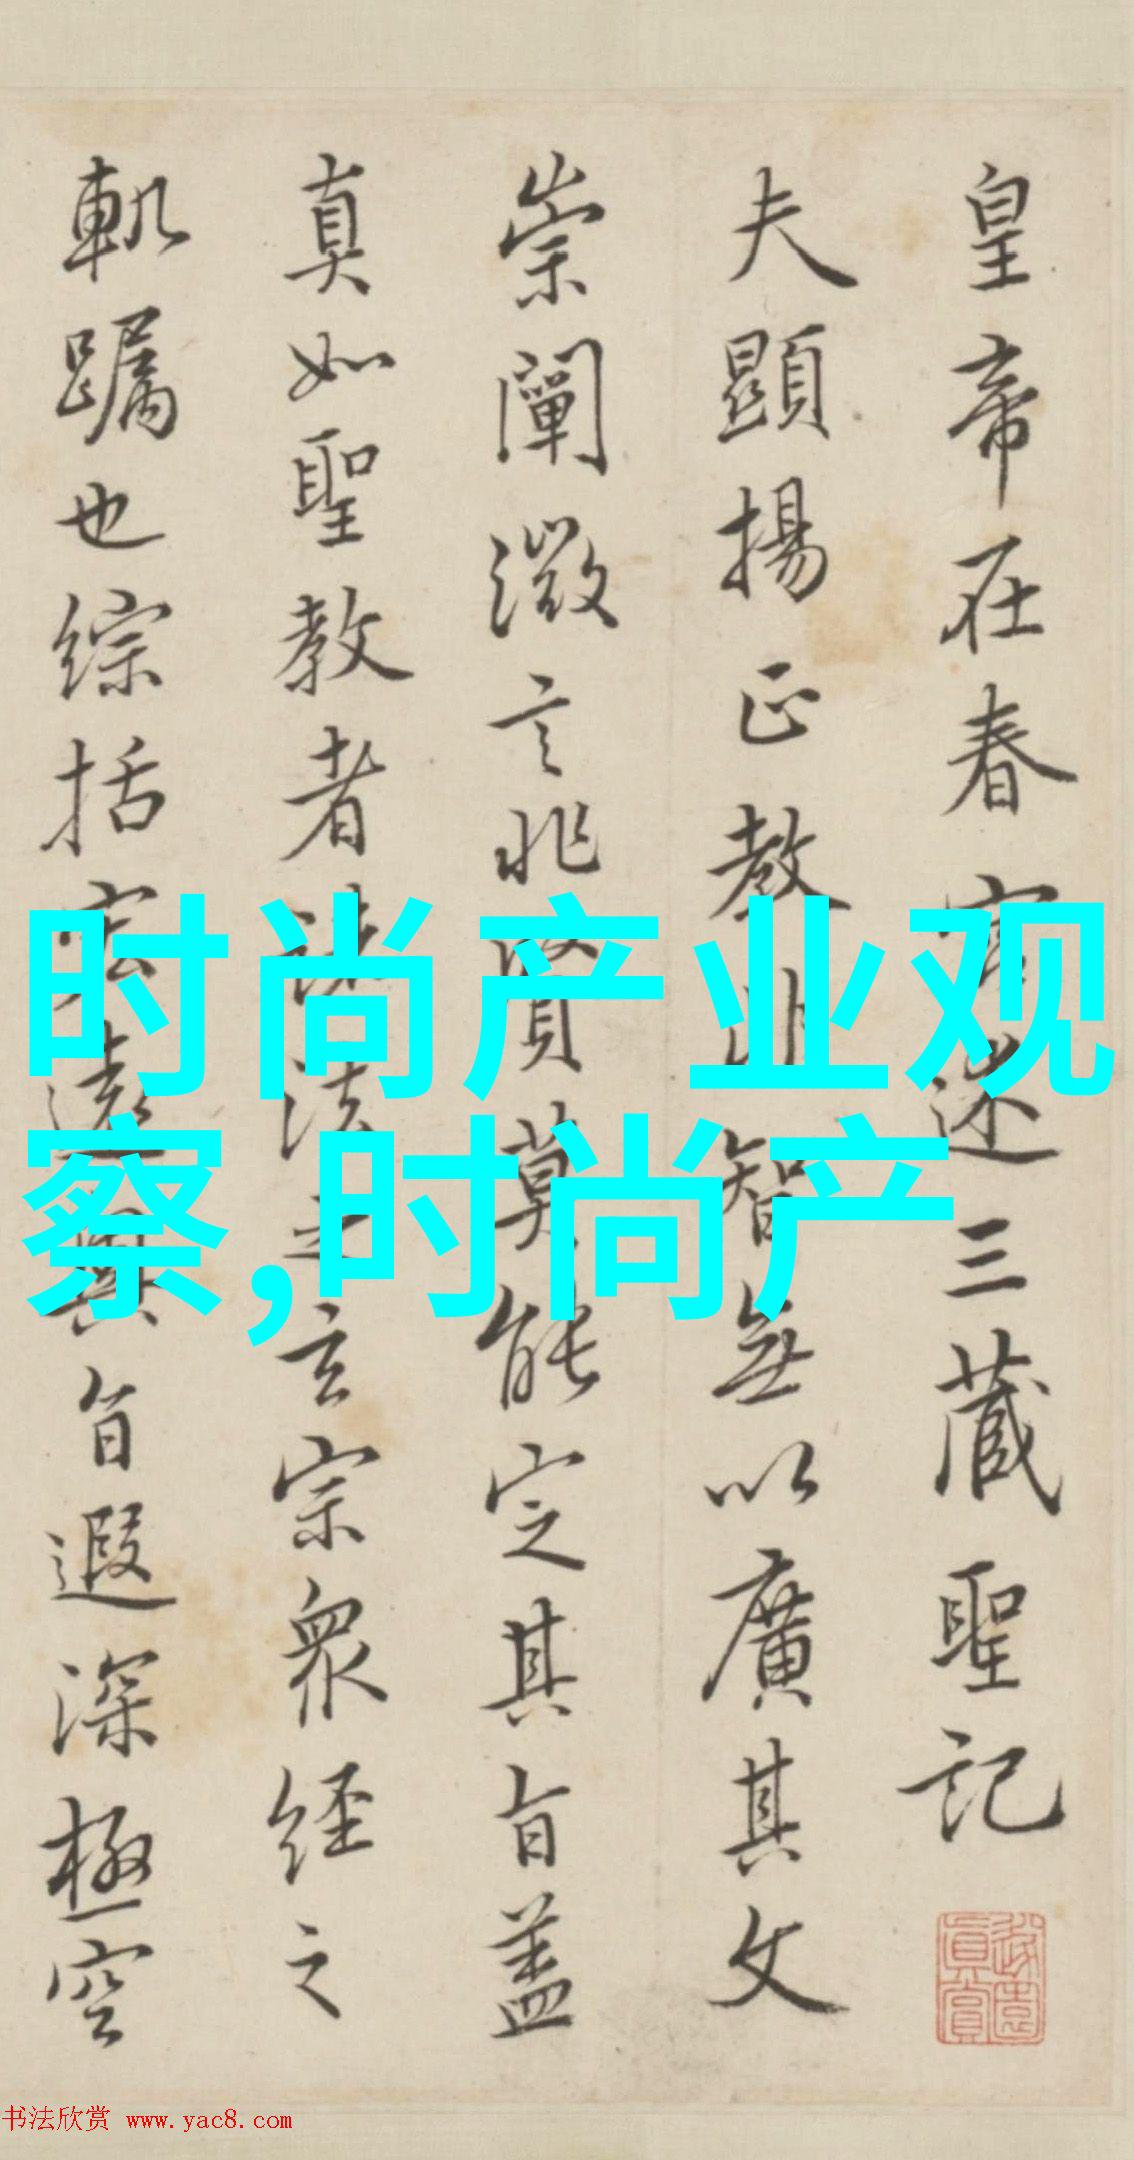 皇帝在春宮述三藏聖記
夫顯揚正教非智無以廣其文
崇闡微言非賢莫能定其旨蓋
真如聖教者諸法之玄宗眾經之
軌躅也綜括宏遠奧旨遐深極空
時尚产业观
察,时尚产
书法欣赏 www.yac8.com